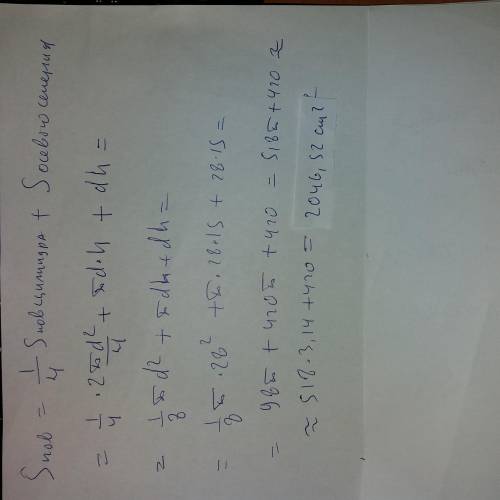 Sпов = 1/4 Sпов цилиндра + Sосевого сечения
= 1/4 · 2πd²/4 + πd·h + dh =
= 1/8 πd² + πdh + dh =
= 1/8 π · 28² + π · 28 · 15 + 28 · 15 =
= 98π + 420π + 420 = 518π + 420 ≈
≈ 518 · 3,14 + 420 = 2046,52 см²